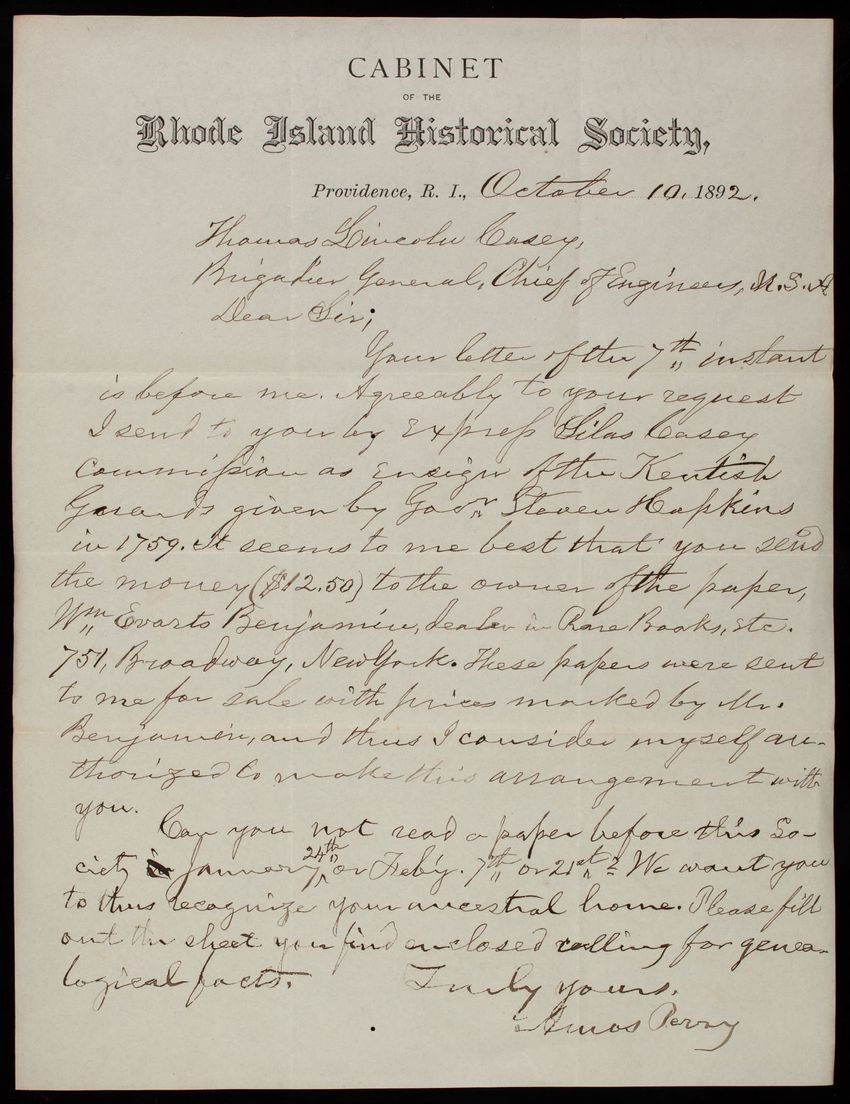 CABINET
OF THE
Rhode Island Historical Society,
Providence, R. I., October 10, 1892.
Thomas Lincoln Casey,
Brigadier General, Chief of Engineers, U. S. A
Dear Sir;
Your letter of the 7th instant
is before me. Agreeably to your request
I send to you by express Silas Casey
commission as Ensign of the Kentish
Guards given by Govr. Steven Hopkins
in 1759. It seems to me best that you send
the money ($12.50) to the owner of the paper,
Wm Evarts Benjamin, dealer in Rare Books, etc.
751, Broadway, New York. These papers were sent
to me for sale with prices marked by Mr.
Benjamin, and thus I consider myself au-
thorized to make this arrangement with
you.
Can you not read a paper before this So-
ciety January 24th or Feb'y. 7th or 21st? We want you
to thus recognize your ancestral home. Please fill
out the sheet you find enclosed calling for genea-
logical facts.
Truly yours.
Amos Perry